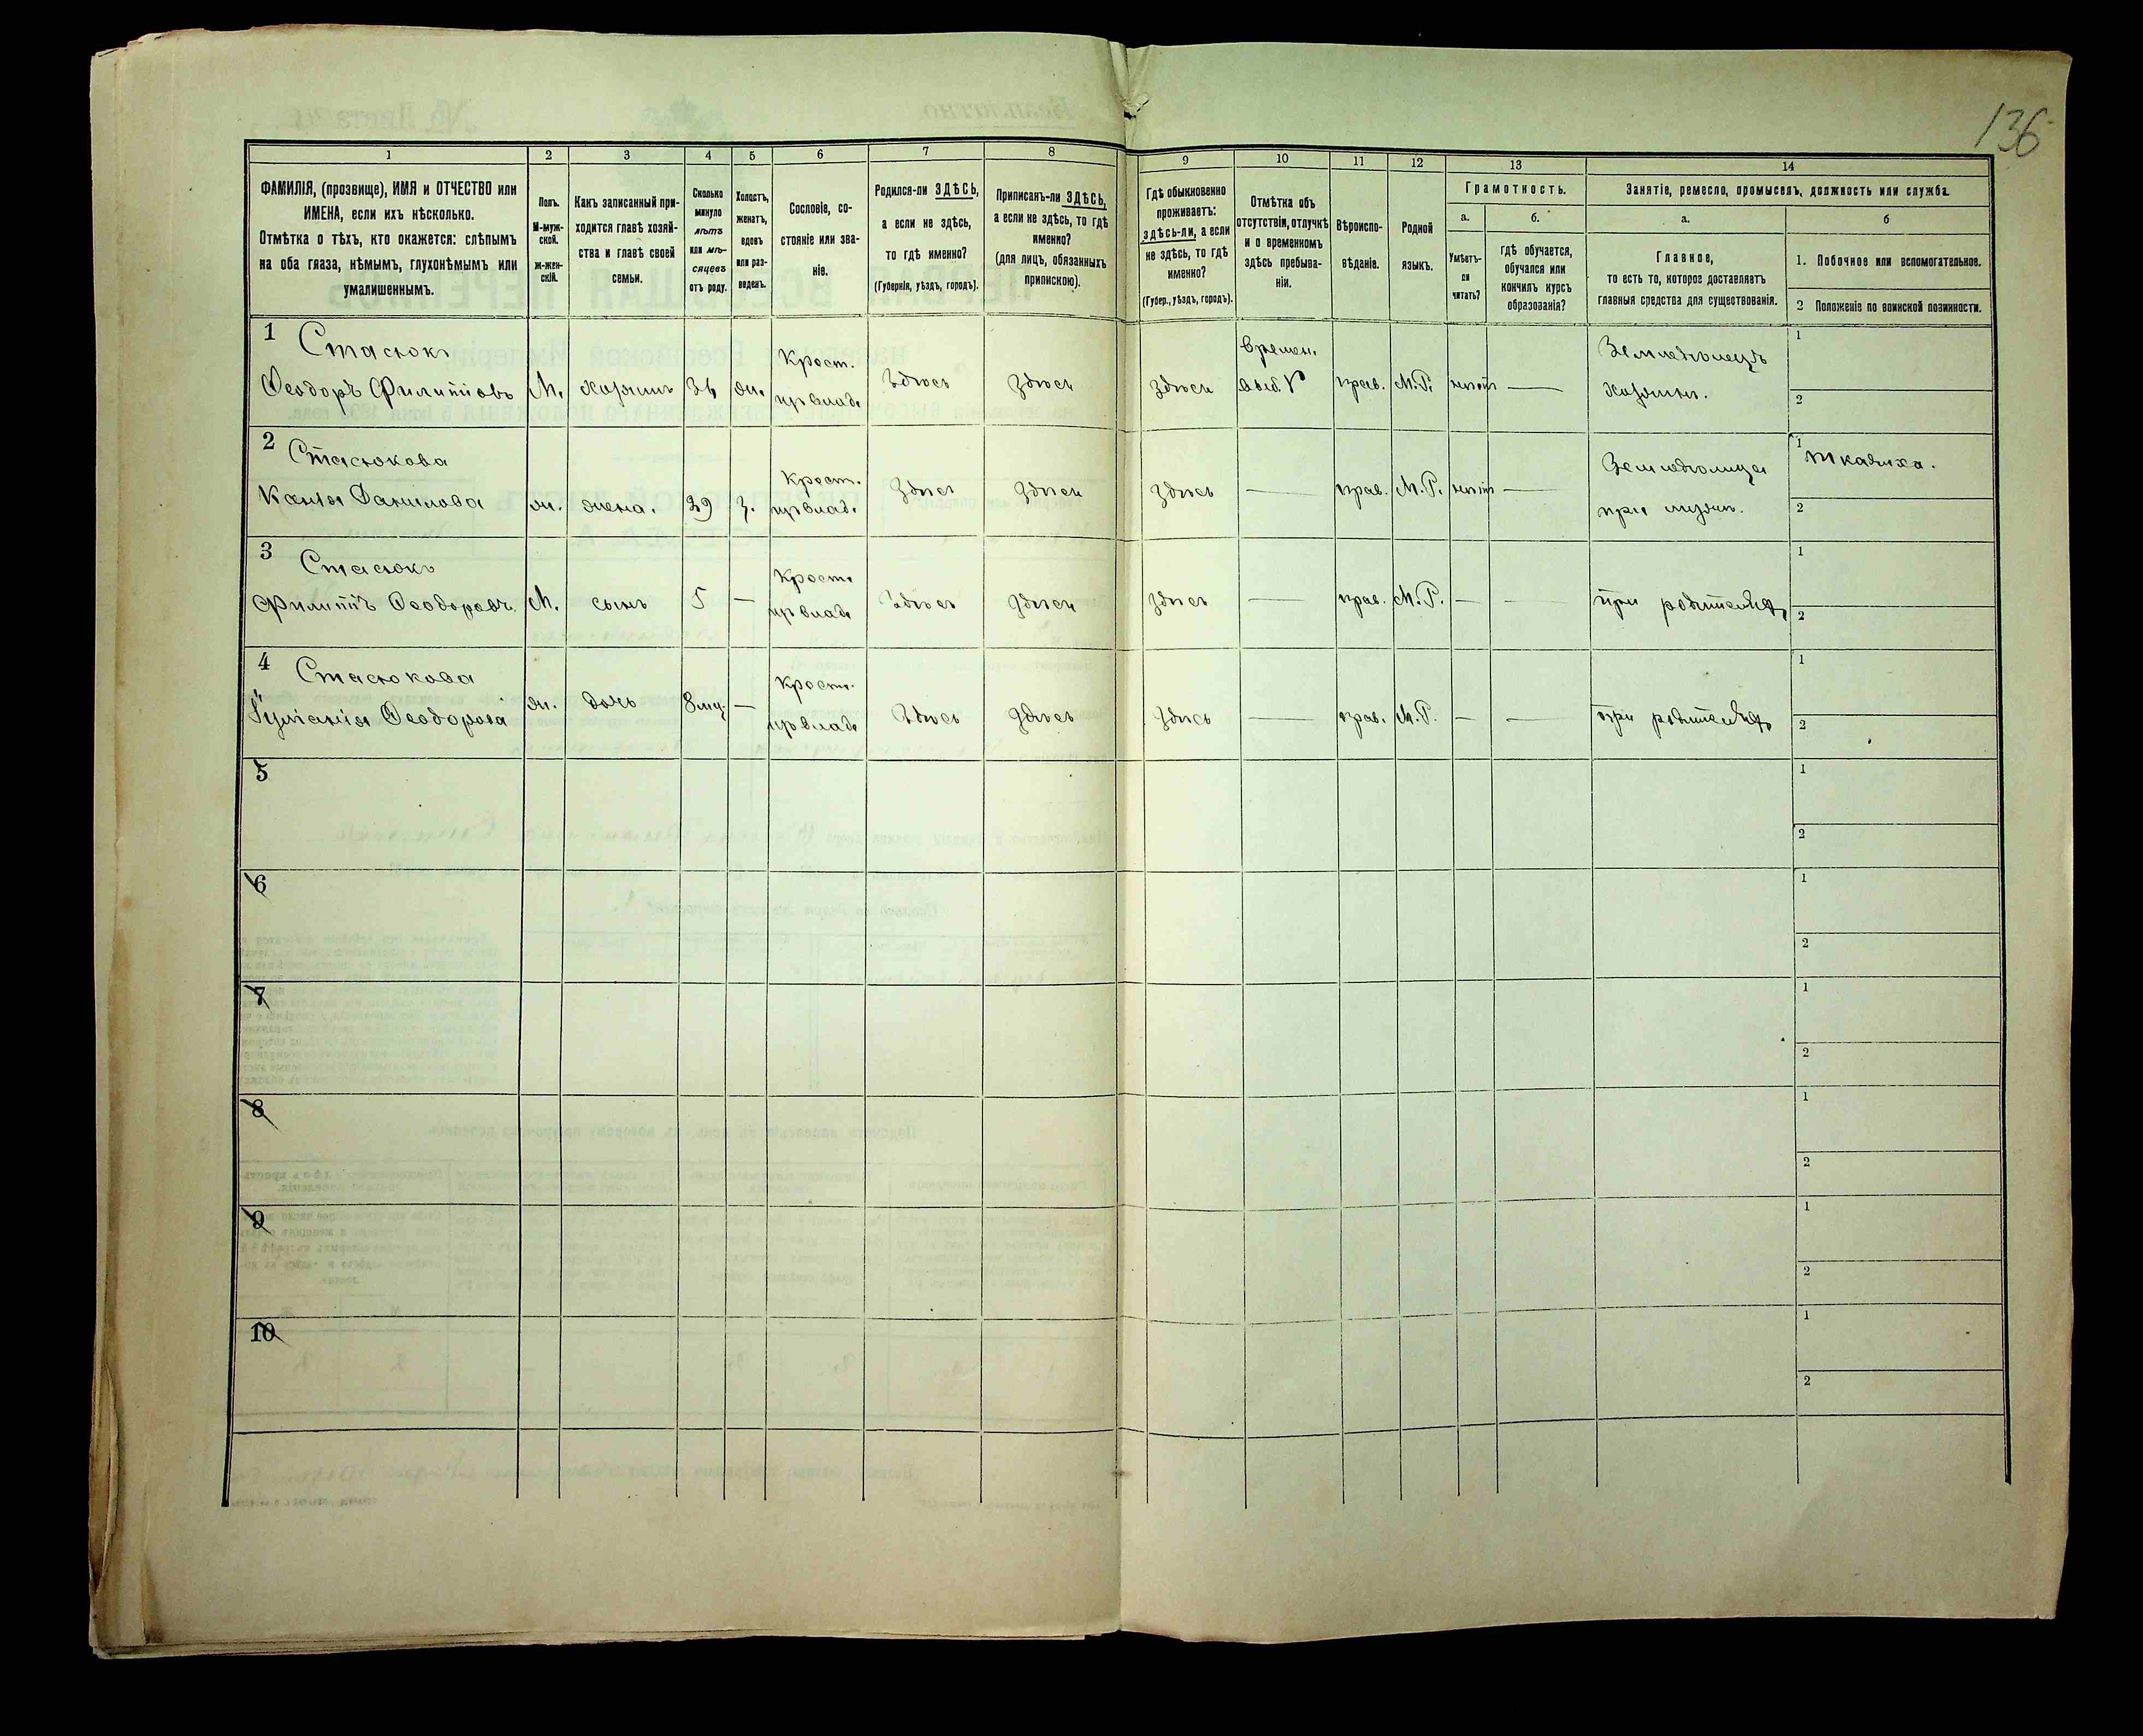 136
1 2 3 4 5 6 7 8 9 10 11 12 13 14
ФАМИЛІЯ, (прозвище), ИМЯ и ОТЧЕСТВО или
ИМЕНА, если ихъ нѣсколько.
Отмѣтка о тѣхъ, кто окажется: слѣпымъ
на оба глаза, нѣмымъ, глухонѣмымъ или
умалишеннымъ.
Полъ.
М-муж-
ской.
ж-жен-
скій.
Какъ записанный при-
ходится главѣ хозяй-
ства и главѣ своей
семьи.
Сколько
минуло
лѣтъ
или мѣ-
сяцевъ
отъ роду.
Холостъ,
женатъ,
вдовъ
или раз-
веденъ.
Сословіе, со-
стояніе или зва-
ніе.
Родился-ли ЗДѢСЬ,
а если не здѣсь,
то гдѣ именно?
(Губернія, уѣздъ, городъ).
Приписанъ-ли ЗДѢСЬ,
а если не здѣсь, то гдѣ
именно?
(для лицъ, обязанныхъ
припискою).
Гдѣ обыкновенно
проживаетъ:
здѣсь-ли, а если
не здѣсь, то гдѣ
именно?
(Губер., уѣздъ, городъ).
Отмѣтка объ
отсутствіи, отлучкѣ
и о временномъ
здѣсь пребыва-
ніи.
Вѣроиспо-
вѣданіе.
Родной
языкъ.
Грамотность.
а.
Умѣетъ-
ли
читать?
б.
гдѣ обучается,
обучался или
кончилъ курсъ
образованія?
Занятіе, ремесло, промыселъ, должность или служба.
а.
Главное,
то есть то, которое доставляетъ
главныя средства для существованія.
б
1. Побочное или вспомогательное.
2 Положеніе по воинской повинности.
1 Стасюкъ Крест. времен. Земледѣлецъ 1
Ѳеодоръ Филиповъ М. хозяинъ жн. пр влад. Здѣсь Здѣсь Здѣсь прав. М.Р. нѣтъ — хозяинъ. 2
2 Стасюкова Крест. Земледѣлица 1 Ткачиха.
Данилова жн. жена. 29 з. пр влад. Здѣсь Здѣсь Здѣсь — прав. М.Р. нѣтъ — при мужѣ. 2
3 Стасюкъ Крест. 1
Филипъ Ѳеодоровъ М. сынъ 5 — пр влад. Здѣсь Здѣсь Здѣсь — прав. М.Р. — — при родителяхъ 2
4 Стасюкова Крест. 1
Іуліанія Ѳеодорова жн. дочь 8 мц. — пр влад. Здѣсь Здѣсь Здѣсь — прав. М.Р. — — при родителяхъ 2
5 1
2
6 1
2
7 1
2
8 1
2
9 1
2
10 1
2